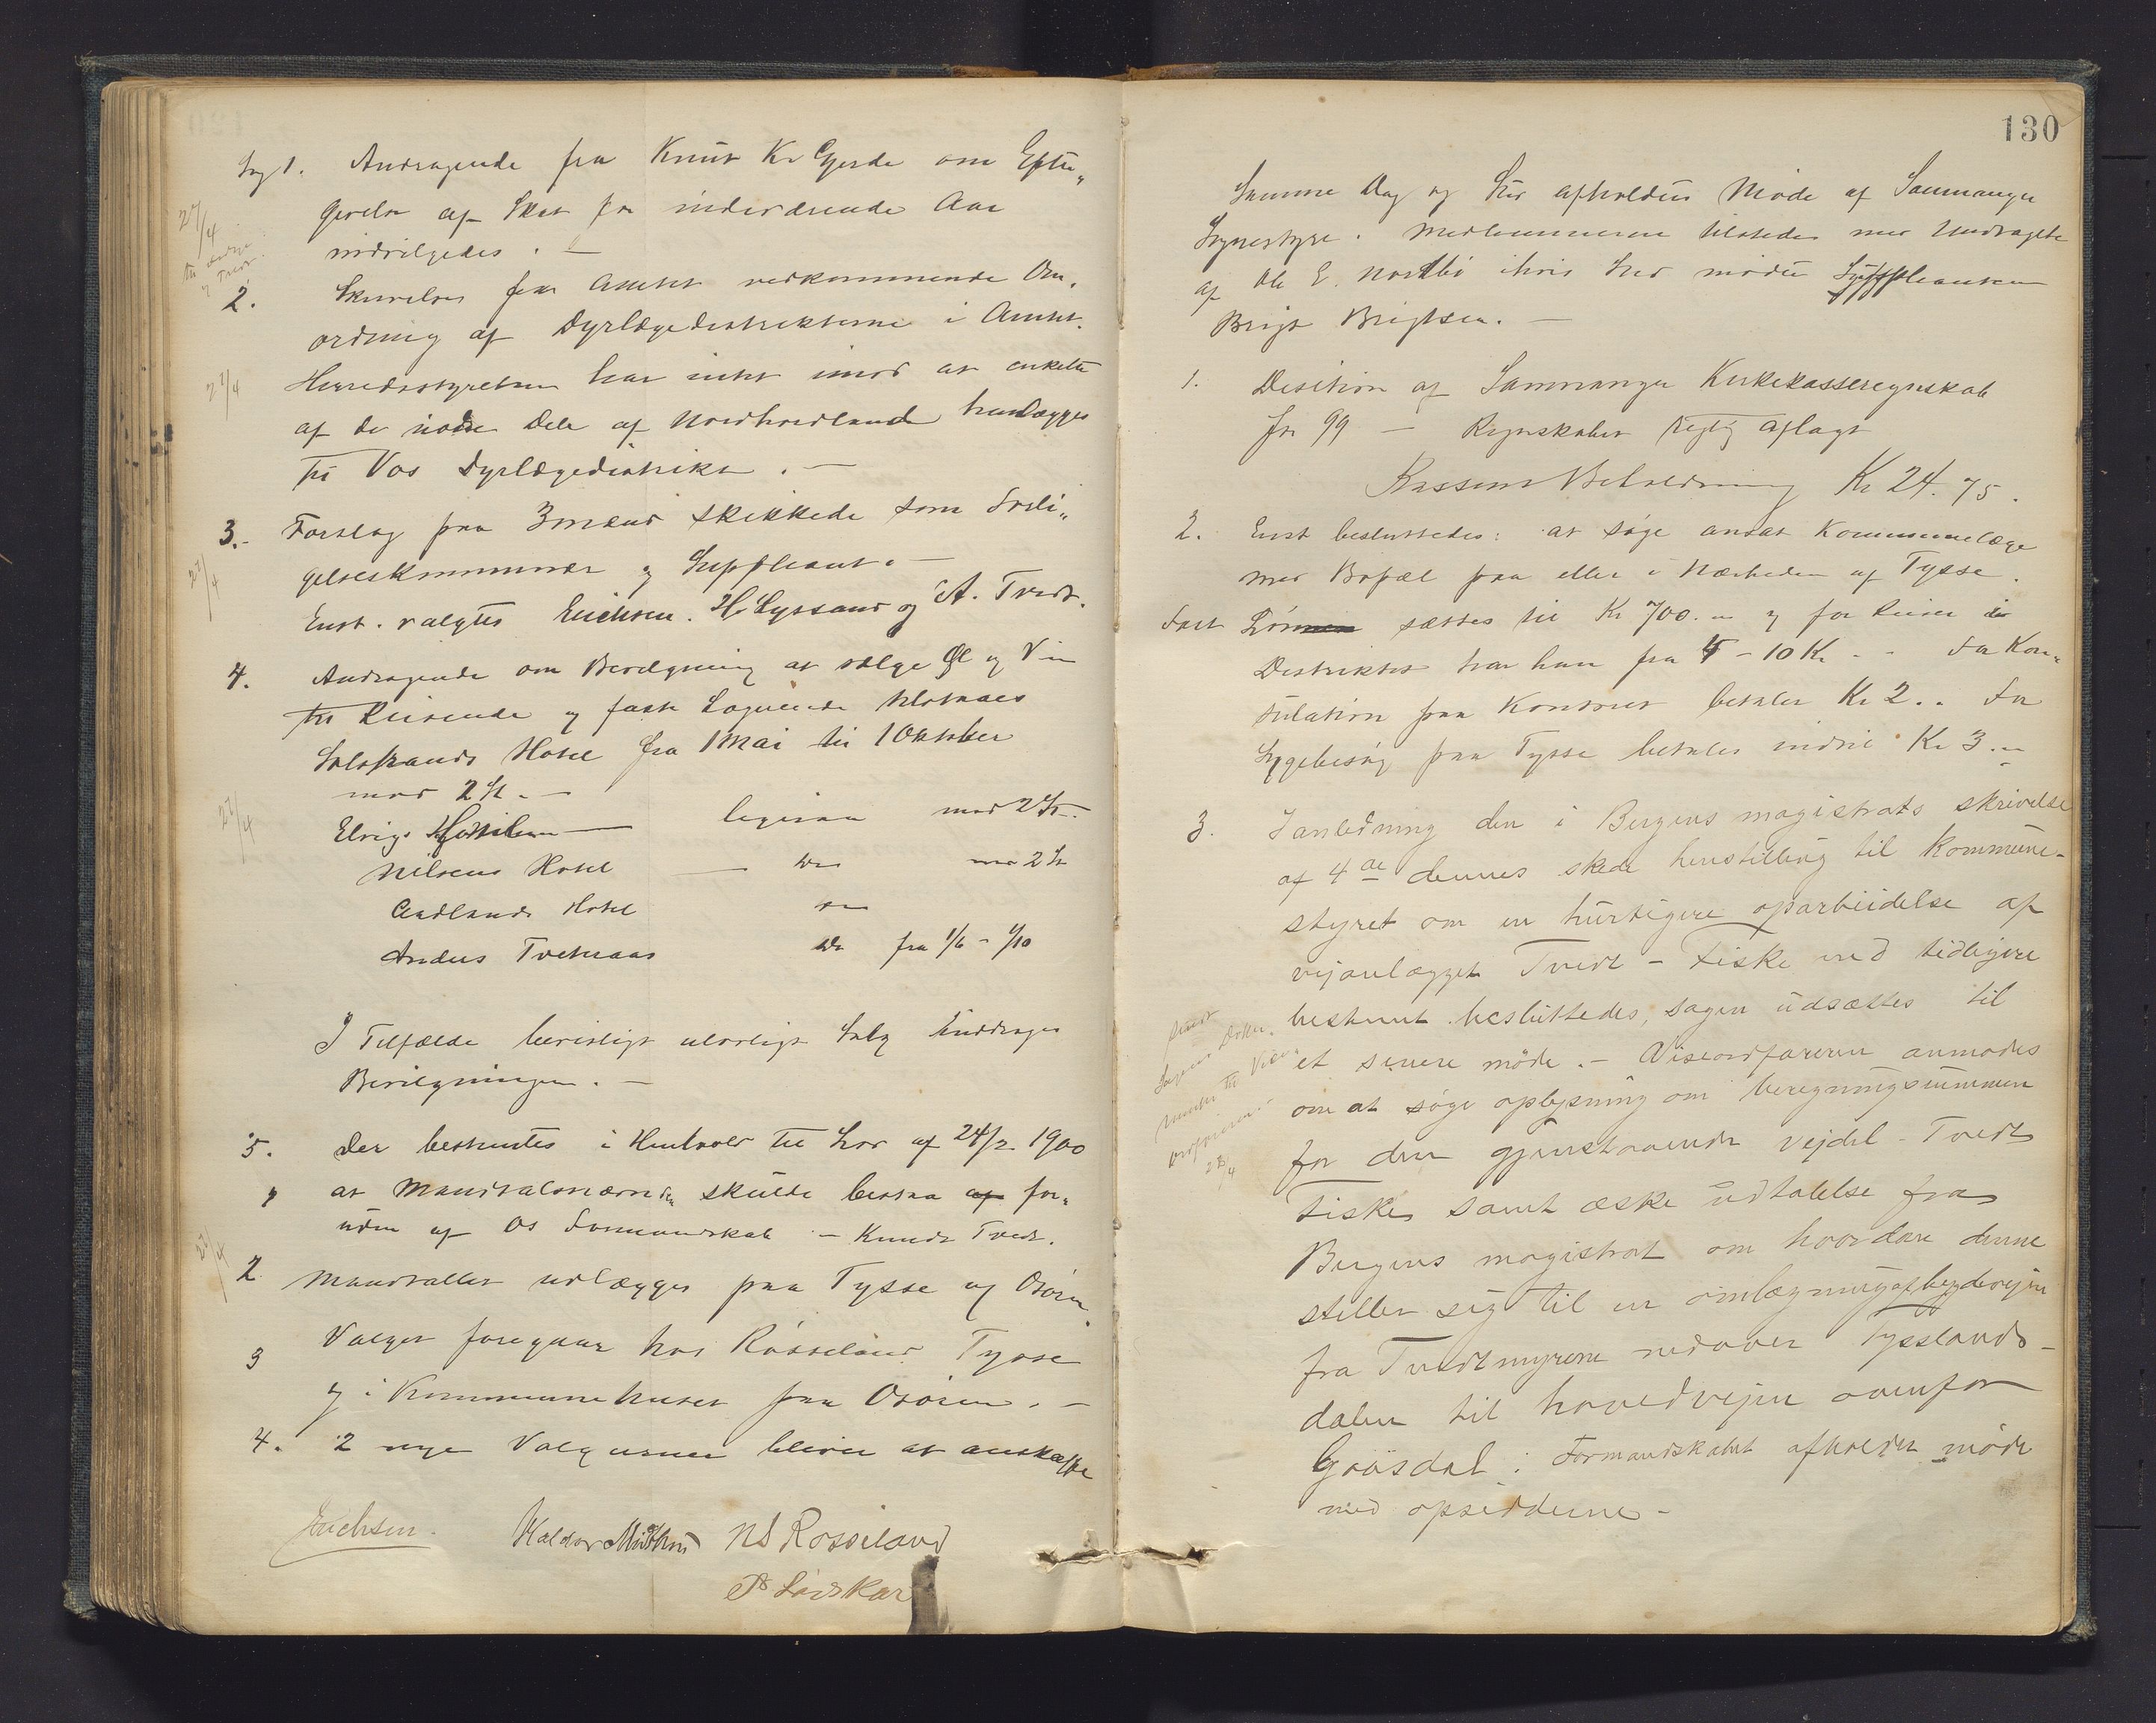 Sag 1. Andragende fra Knut Kr Gjerde om Efter„
givelse af Skat for inderværende Aar
indvilgedes. —
27/4
2. Skrivelse fra Amtet vedkommende Om„
ordning af Dyrlægedistrikterne i Amtet.
27/4
Herredsstyrelsen har intet imod at enkelte
af de indre Dele af Nordhordland henlægges
til Vos Dyrlægedistrikt. —
3. Forslag paa 3 mænd skikkede som Forli„
27/4
gelseskommissær og Suppleant. —
Enst. valgtes Erichsen. H. Lyssand og A. Tvedt.
4. Andragende om Bevilgning at sælge Øl og Vin
til Reisende og faste Logerende tilstaaes
Solstrands Hotel fra 1 Mai til 1 Oktober
mod 2 St. —
27/4
Nilsens Hotel — do mod 2 St
Aadlands Hotel do
Anders Tveteraas do fra 1/6 - 1/10
I Tilfælde bevisligt ulovligt Salg inddrages
Bevilgningen. —
5. Der bestemtes i Henhold til Lov af 24/2 1900
1 at Mandtalsnævnden skulde bestaa af for„
uden af Os Formandskab — Knud Tvedt.
27/4
2 Mandtallet udlægges paa Tysse og Osøren
3 Valget foregaar hos Røsseland Tysse
og i Kommunehuset paa Osøren. —
4. 2 nye Valgurner bliver at anskaffe
Erichsen. Haldor Midthus NS Rosseland
130
Samme Dag og Sted afholdtes Møde af Samnanger
Sognestyre. Medlemmerne tilstede med Undtagelse
af Ole E. Nordbø i hvis Sted mødte Suppleanten
Brigt Brigtsen. —
1. Desition af Samnanger Kirkekasseregnskab
for 99 — Regnskabet rigtig aflagt
Kassens Beholdning Kr 24.75.
2. Enst besluttedes: at søge ansat Kommunelæge
med Bopæl paa eller i Nærheden af Tysse.
Fast Lønnen sættes til Kr 700.— og for Reiser i
Distriktet har han fra 5 - 10 Kr — For Kon„
sulation paa Kontoret betales Kr 2.— For
Sygebesøg paa Tysse betales indtil Kr 3.—
3. I anledning den i Bergens magistrats skrivelse
af 4de dennes skede henstilling til Kommune-
styret om en hurtigere oparbeidelse af
vejanlægget Tvedt - Fiske end tidligere
bestemt besluttedes, sagen udsættes til
et senere møde. — Viseordføreren anmodes
om at søge oplysning om beregningsummen
28/4
for den gjenstaaende vejdel Tvedt
Fiske samt æske udtalelse fra
Bergens magistrat om hvordan denne
stiller sig til en omlægning af bygdevejen
fra Tvedtmyrene nedover Tysslands-
dalen til hovedvejen ovenfor
Gaasdal. Formandskabet afholder møde
med opsidderne —